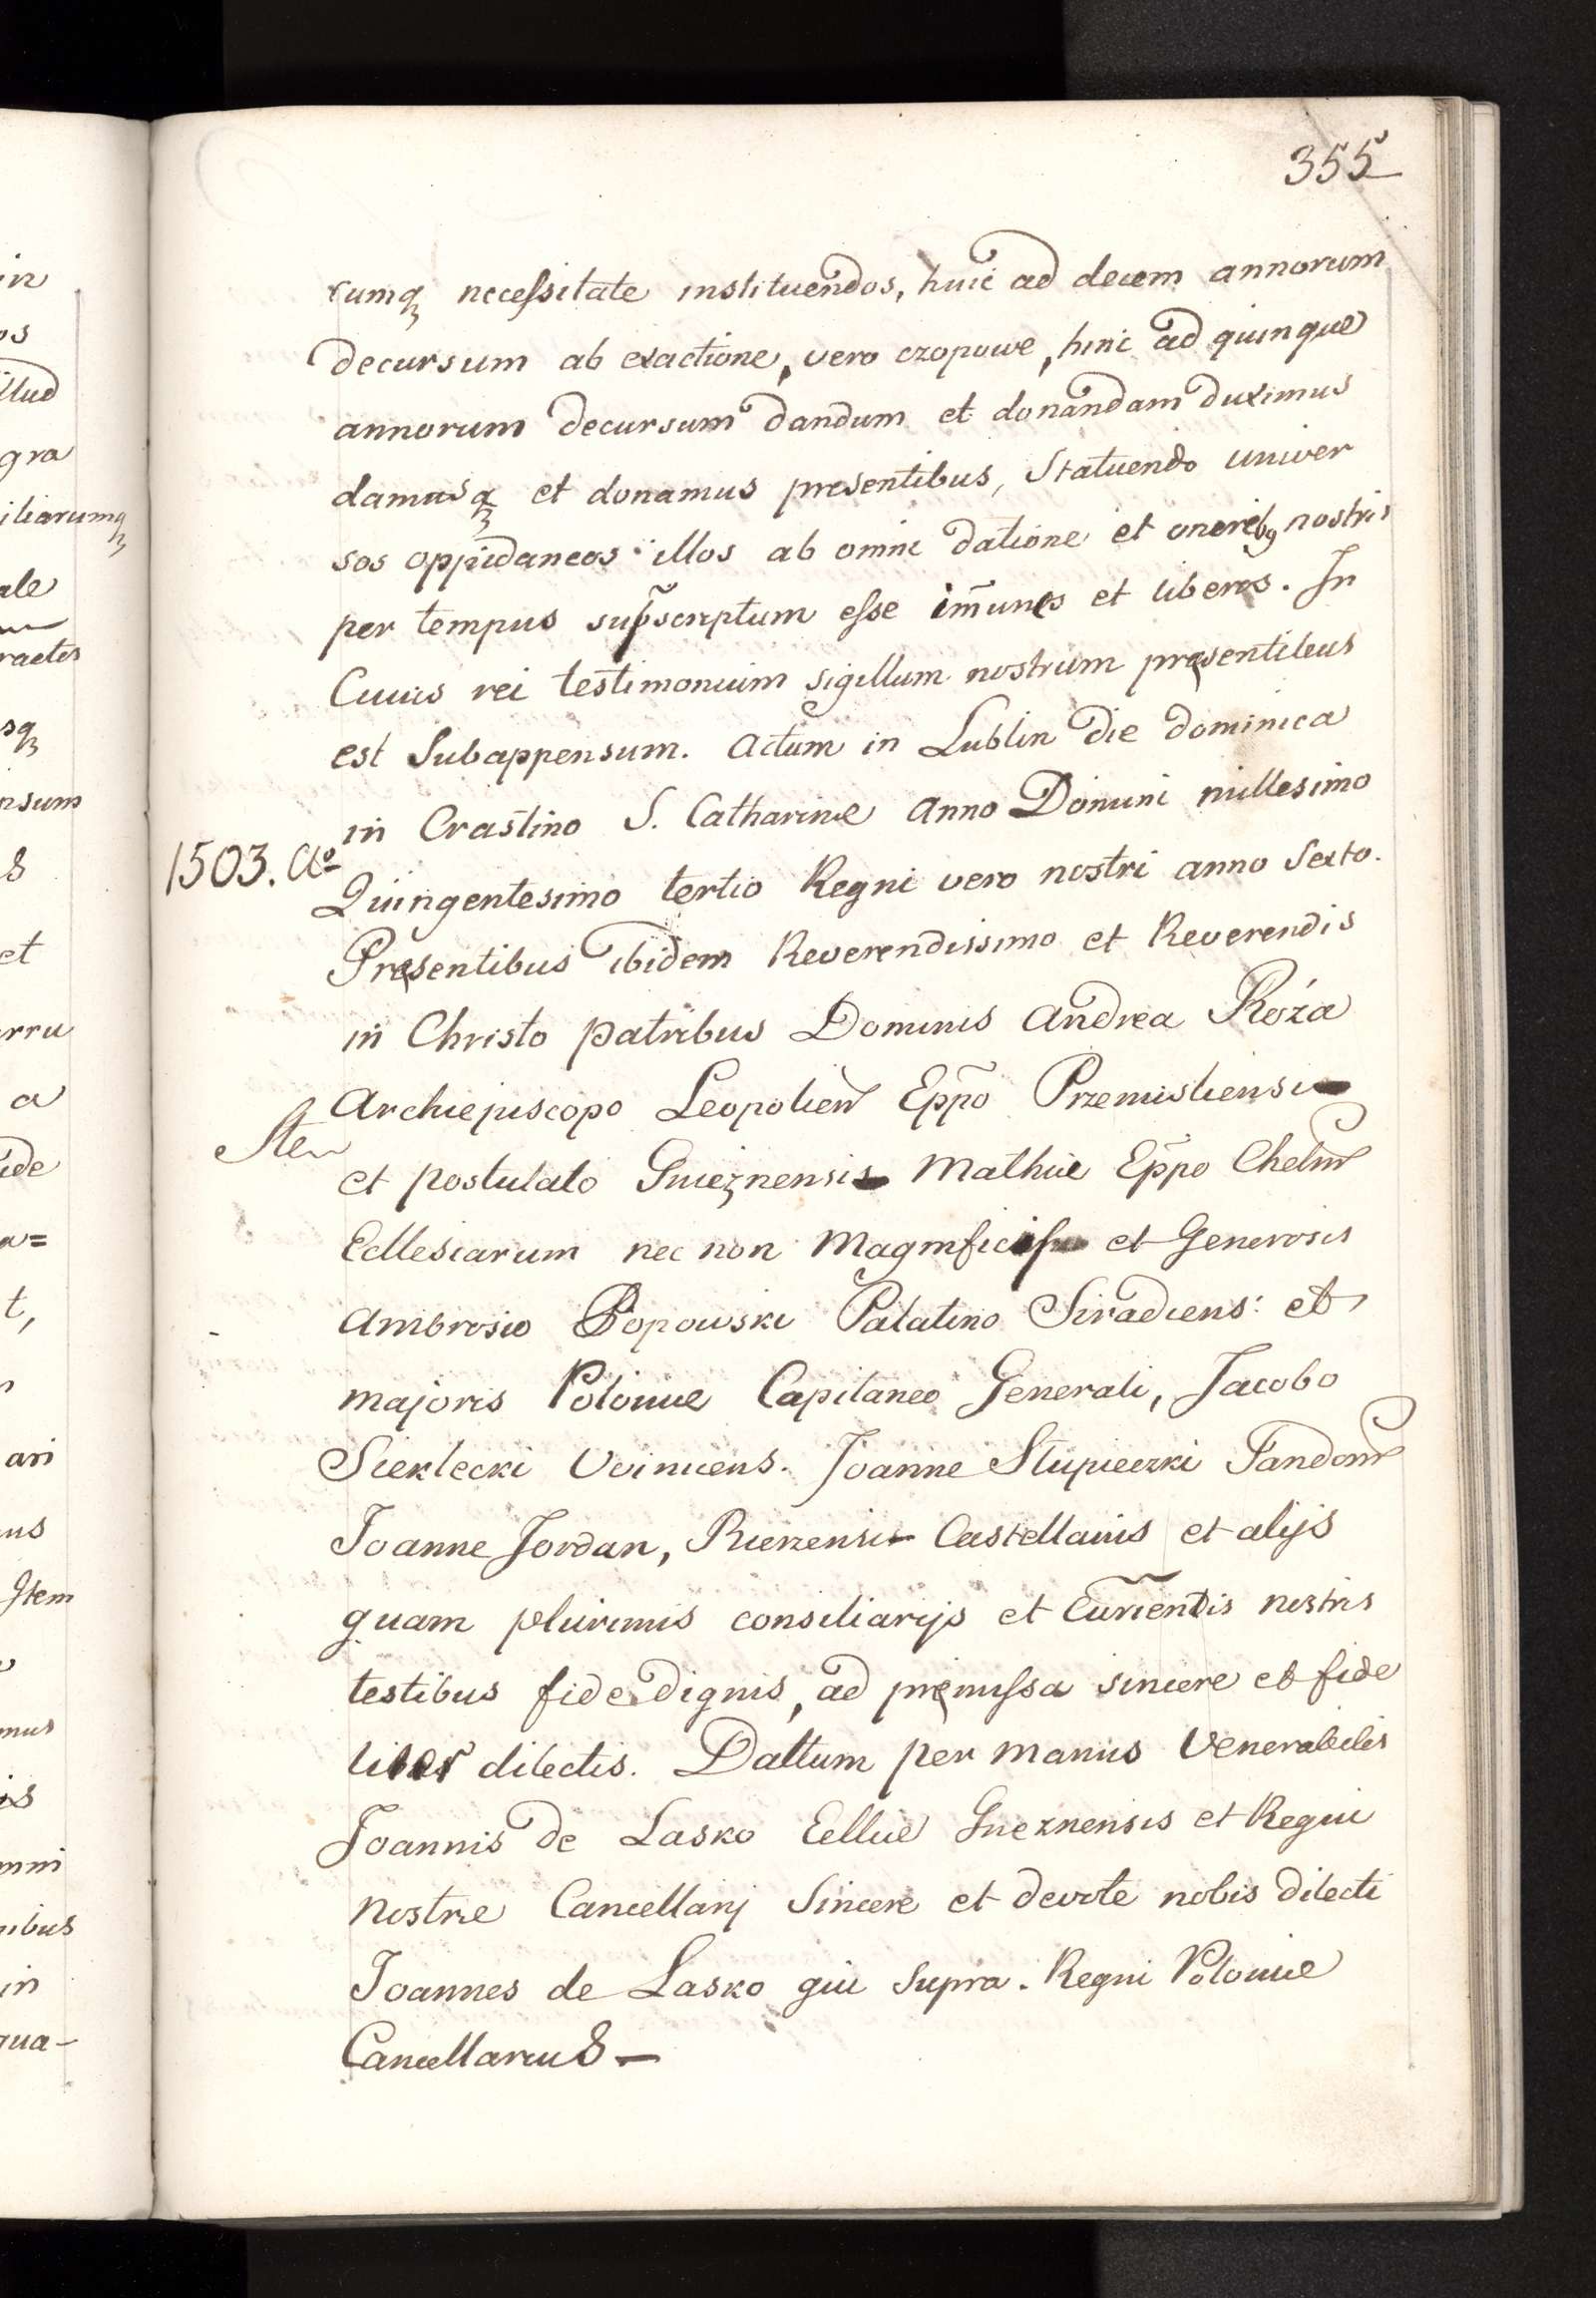 355
rumq necessitate instituendos, huic ad decem annorum
decursum ab exactione, vero czopowe, hinc ad quinque
annorum decursum dandum et donandam duximus
damusq et donamus presentibus, Statuendo univer
sos oppidaneos illos ab omni datione et oneribꝯ nostris
per tempus sup̃scriptum esse im̃unes et liberos. In
Cuius rei testimonium sigillum nostrum pręsentibus
est Subappensum. Actum in Lublin die dominica
in Crastino S. Catharinæ Anno Domini millesimo
1503. Ao
Quingentesimo tertio Regni vero nostri anno Sexto.
Pręsentibus ibidem Reverendissimo et Reverendis
in Christo patribus Dominis Andrea Róża
Archiepiscopo Leopolien Ep̃po Przemisliensi
et postulato Gnieznensi Mathia Ep̃po Chelm
Ecllesiarum nec non Magnificis et Generosis
Ambrosio Popowski Palatino Siradiens: et
majoris Poloniæ Capitaneo Generali, Jacobo
Sieklecki Voinicens. Joanne Słupieczki Sandom
Joanne Jordan, Biezensi Castellanis et alijs
quam plurimis consiliarijs et Curiens̃is nostris
testibus fide dignis, ad pręmissa sincere et fide
liter dilectis. Dattum per manus Venerabilis
Joannis de Lasko Eclliæ Gneznensis et Regni
nostræ Cancellarij Sincere et devote nobis dilecti
Joannes de Lasko qui Supra. Regni Poloniæ
Cancellarius –